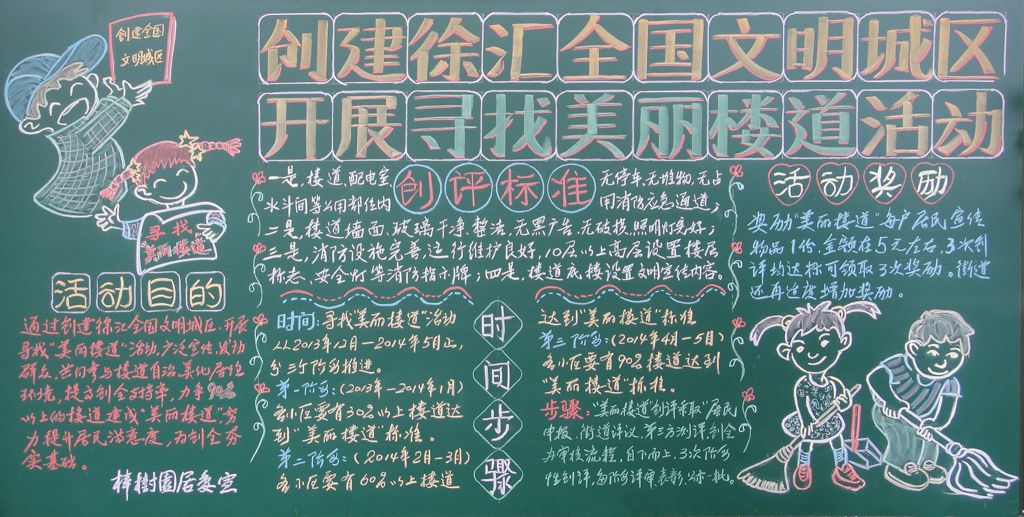 创建全国
文明城区
创建徐汇全国文明城区
开展寻找美丽楼道活动
寻找
"美丽楼道"
活动目的
通过创建徐汇全国文明城区,开展
寻找"美丽楼道"活动,广泛宣传、发动
群众,共同参与楼道自治、美化居住
环境,提高创全支持率,力争90%
以上的楼道建成"美丽楼道",努
力提升居民满意度,为创全夯
实基础。
梓树园居委宣
创评标准
一是,楼道、配电室、
水斗间等公用部位内
无停车、无堆物、无占
用消防应急通道;
二是,楼道墙面、玻璃干净整洁,无黑广告,无破损,照明灯完好;
三是,消防设施完善,运行维护良好,10层以上高层设置楼层
标志、安全灯等消防指示牌;四是,楼道底楼设置文明宣传内容。
时间步骤
时间:寻找"美丽楼道"活动
从2013年12月—2014年5月止,
分三个阶段推进。
第一阶段:(2013年—2014年1月)
各小区要有30%以上楼道达
到"美丽楼道"标准。
第二阶段:(2014年2月—3月)
各小区要有60%以上楼道
达到"美丽楼道"标准
第三阶段:(2014年4月—5月)
各小区要有90%楼道达到
"美丽楼道"标准。
步骤:"美丽楼道"创评采取"居民
申报、街道评议、第三方测评、创全
办审核流程,自下而上,3次阶段
性创评,每阶段评审表彰、公示一批。
活动奖励
奖励"美丽楼道"每户居民宣传
物品1份,金额在5元左右,3次创
评均达标可领取3次奖励。街道
还再适度增加奖励。